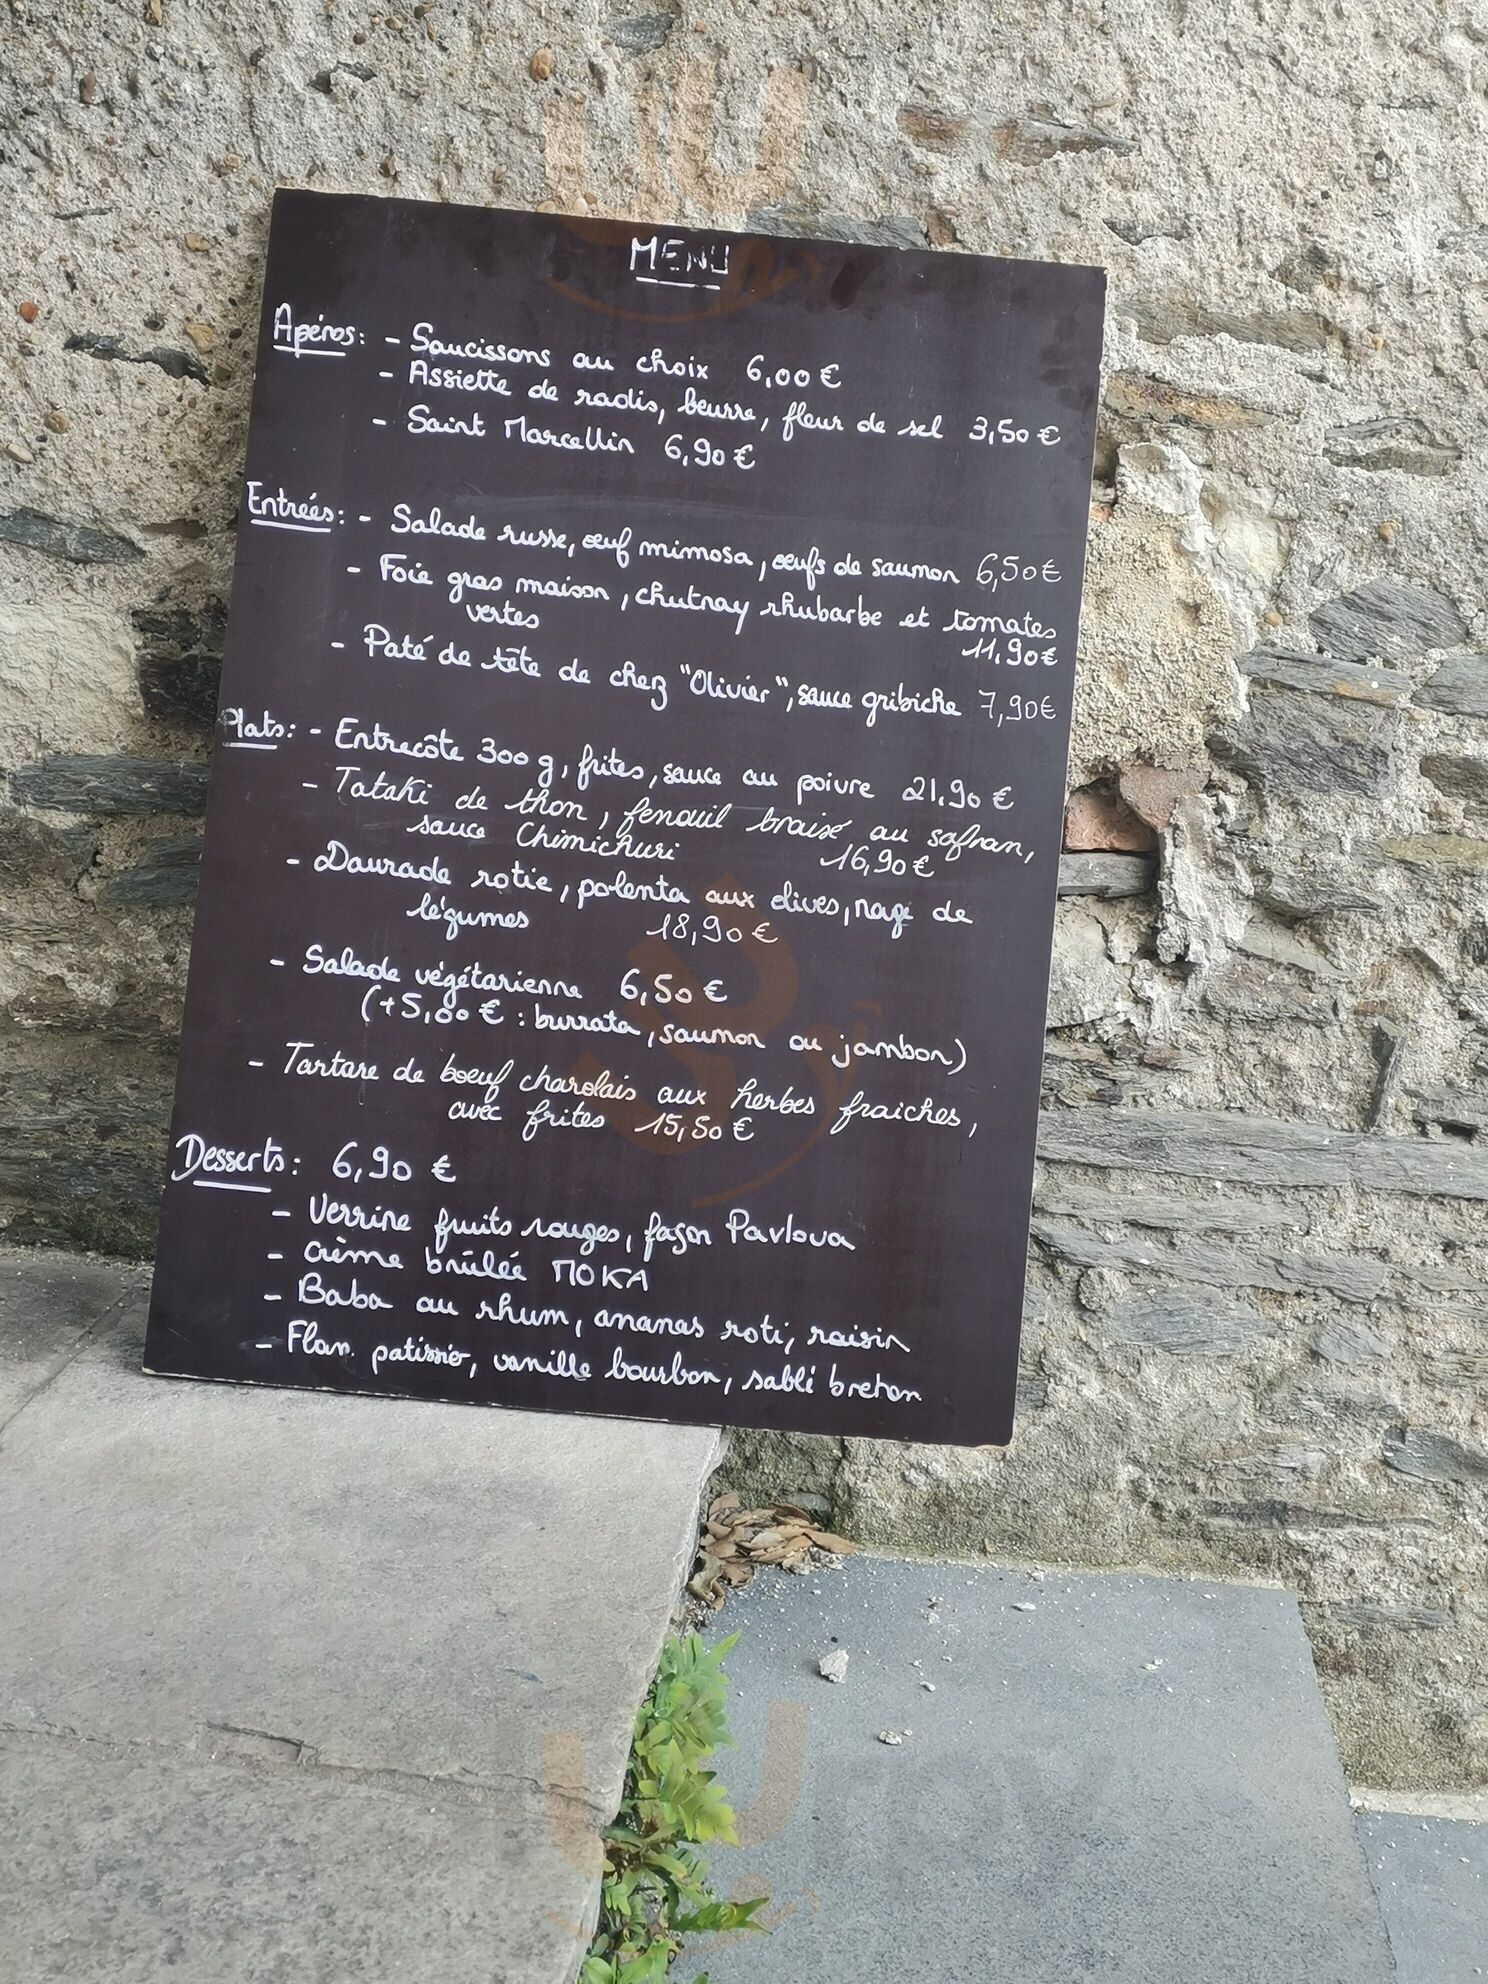 MENU
Apéros: - Saucissons au choix 6,00 €
- Assiette de radis, beurre, fleur de sel 3,50 €
- Saint Marcellin 6,90 €
Entreés: - Salade russe, œuf mimosa, œufs de saumon 6,50 €
- Foie gras maison, chutnay rhubarbe et tomates
vertes 11,90 €
- Paté de tête de chez "Olivier", sauce gribiche 7,90 €
Plats: - Entrecôte 300 g, frites, sauce au poivre 21,90 €
- Tataki de thon, fenouil braisé au safran,
sauce Chimichuri 16,90 €
- Daurade rotie, polenta aux olives, nage de
légumes 18,90 €
- Salade végétarienne 6,50 €
(+5,00 € : burrata, saumon ou jambon)
- Tartare de boeuf charolais aux herbes fraiches,
avec frites 15,50 €
Desserts: 6,90 €
- Verrine fruits rouges, façon Pavlova
- Crème brûlée MOKA
- Baba au rhum, ananas roti, raisin
- Flan patissier, vanille bourbon, sablé breton